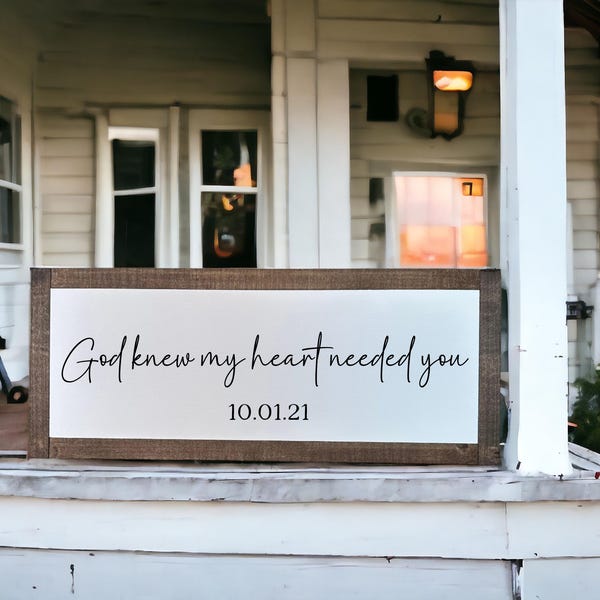 God knew my heart needed you
10.01.21